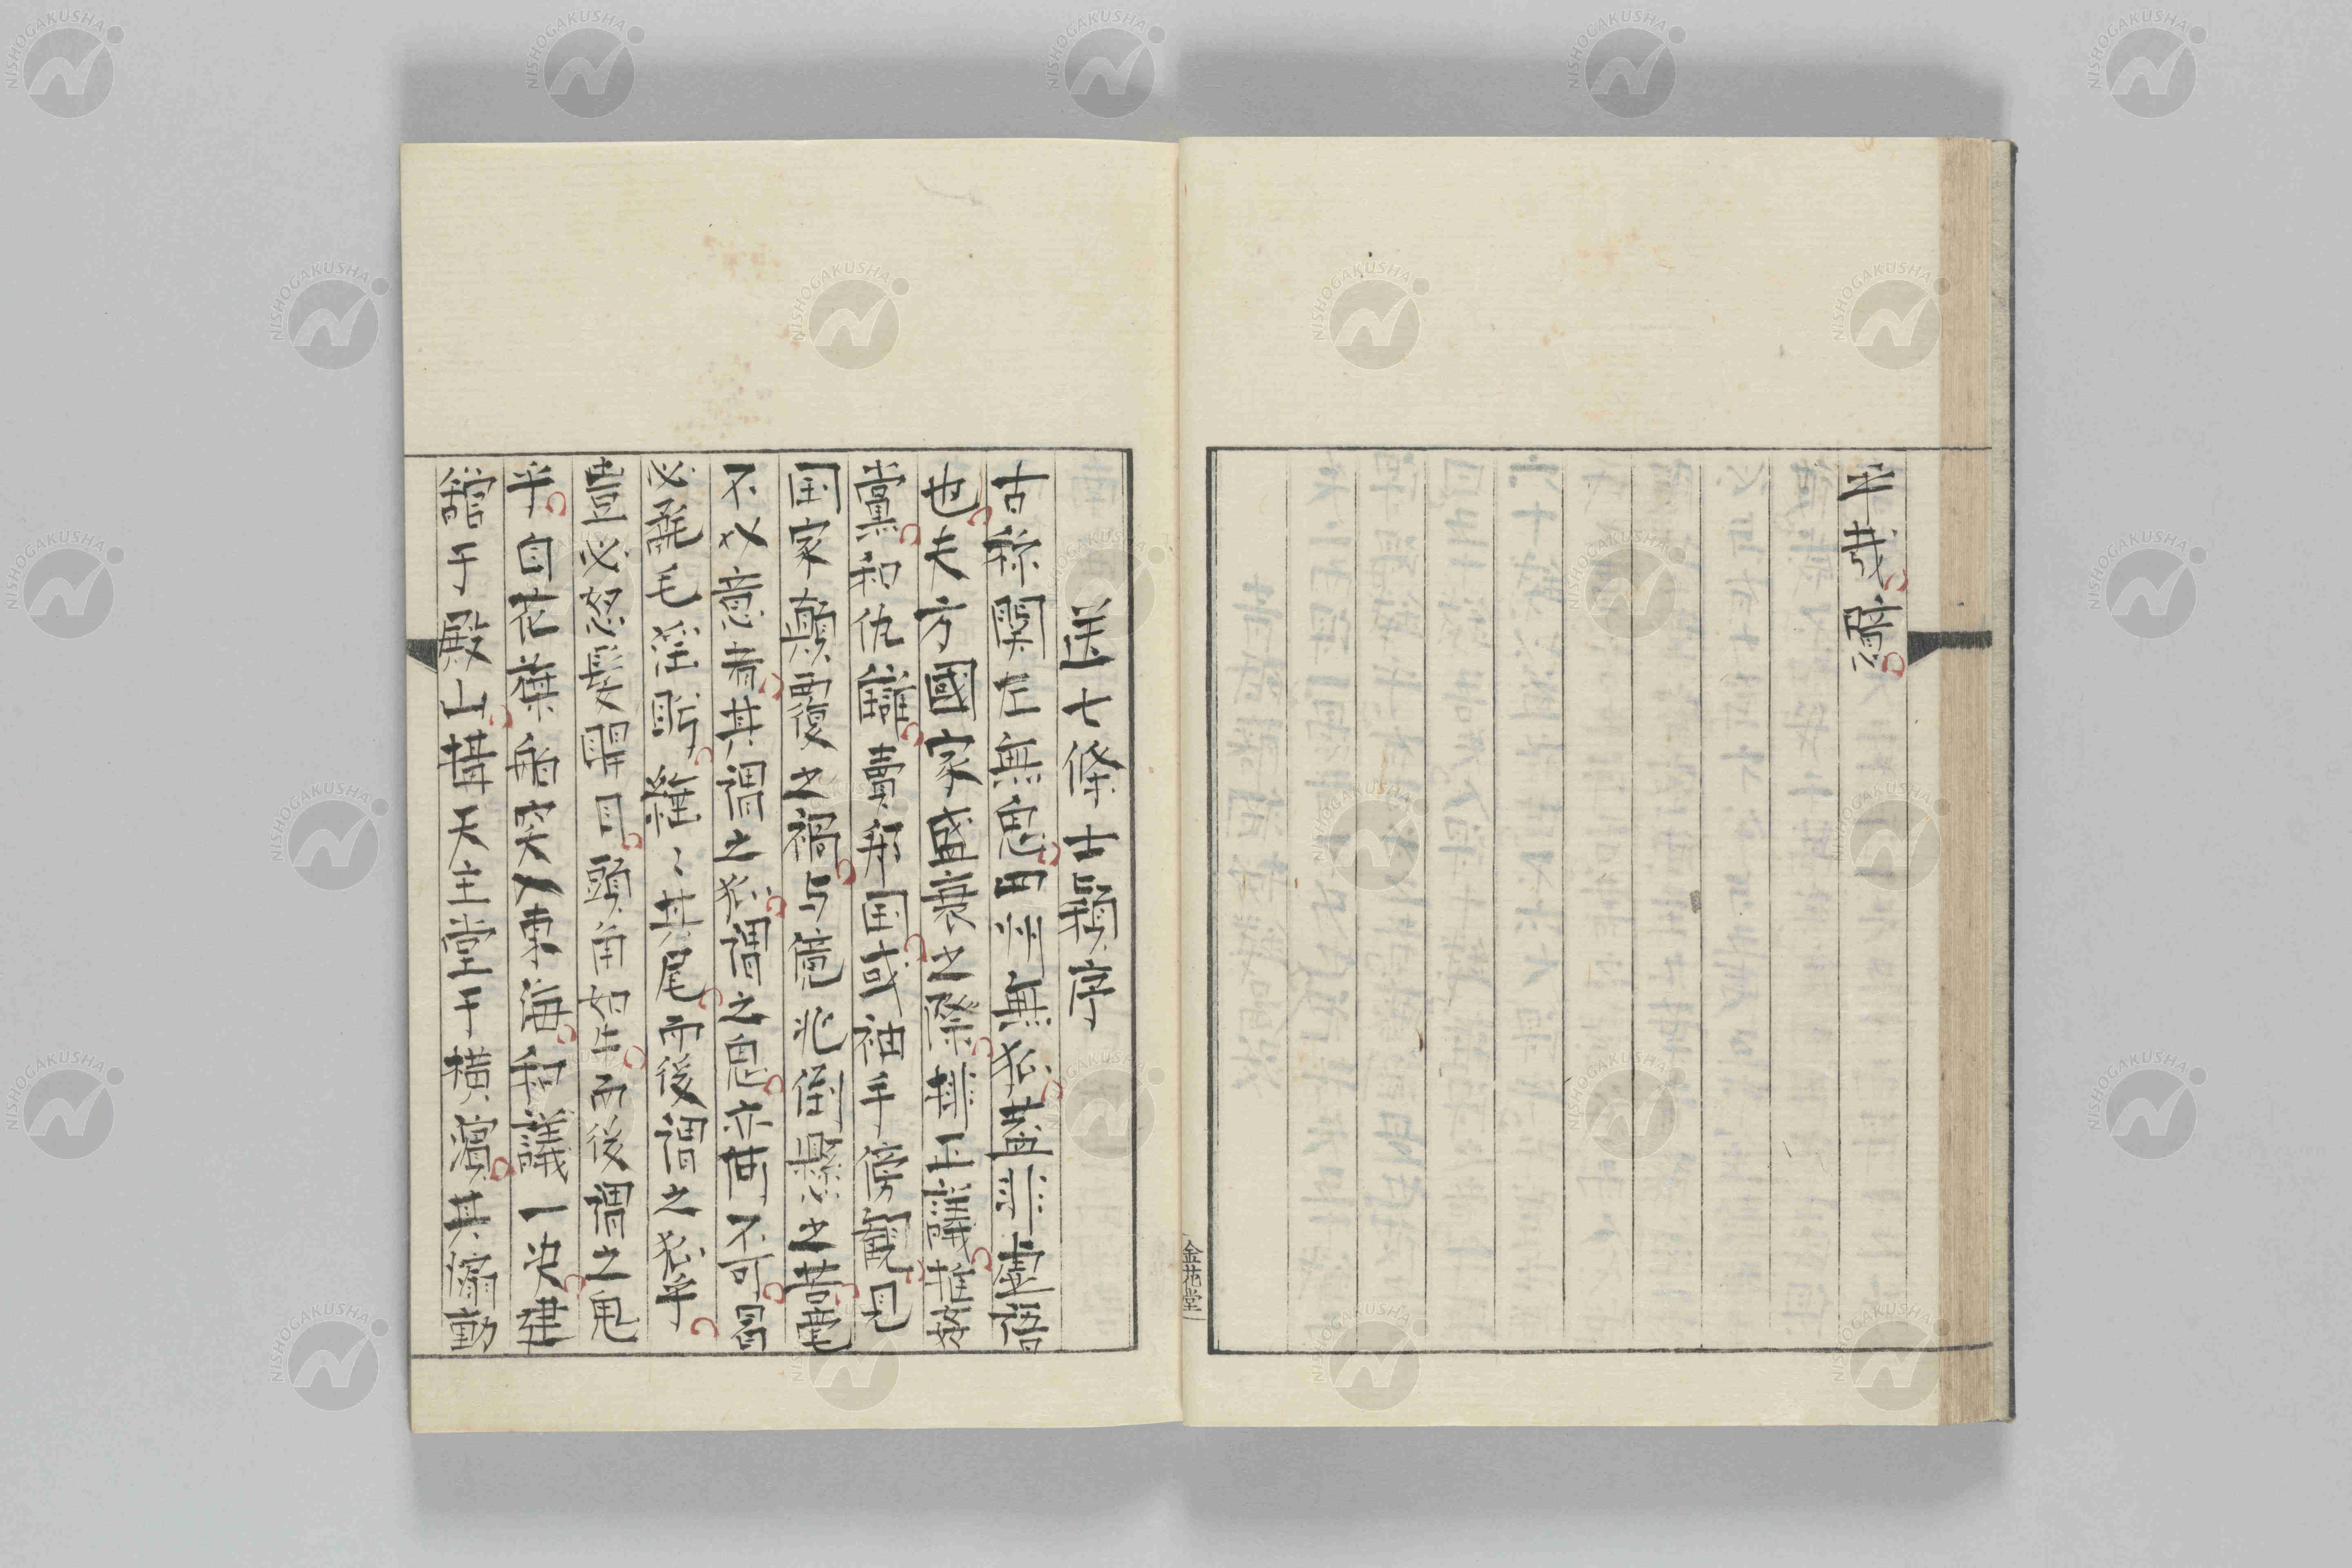 平哉噫
送七條士穎序
古称関左無鬼四州無狐蓋非虚語
也夫方國家盛衰之際排正議推姦
黨和仇讎賣邦国或袖手傍観見
国家顛覆之禍与億兆倒懸之苦毫
不以意者其謂之狐謂之鬼亦何不可曷
必毛淫眇綏〻其尾而後謂之狐乎
豈必怒髪瞋目頭角如生而後謂之鬼
乎自花旗舶突入東海和議一決建
舘于殿山搆天主堂于横濱其傭動
金花堂
NISHOGAKUSHA